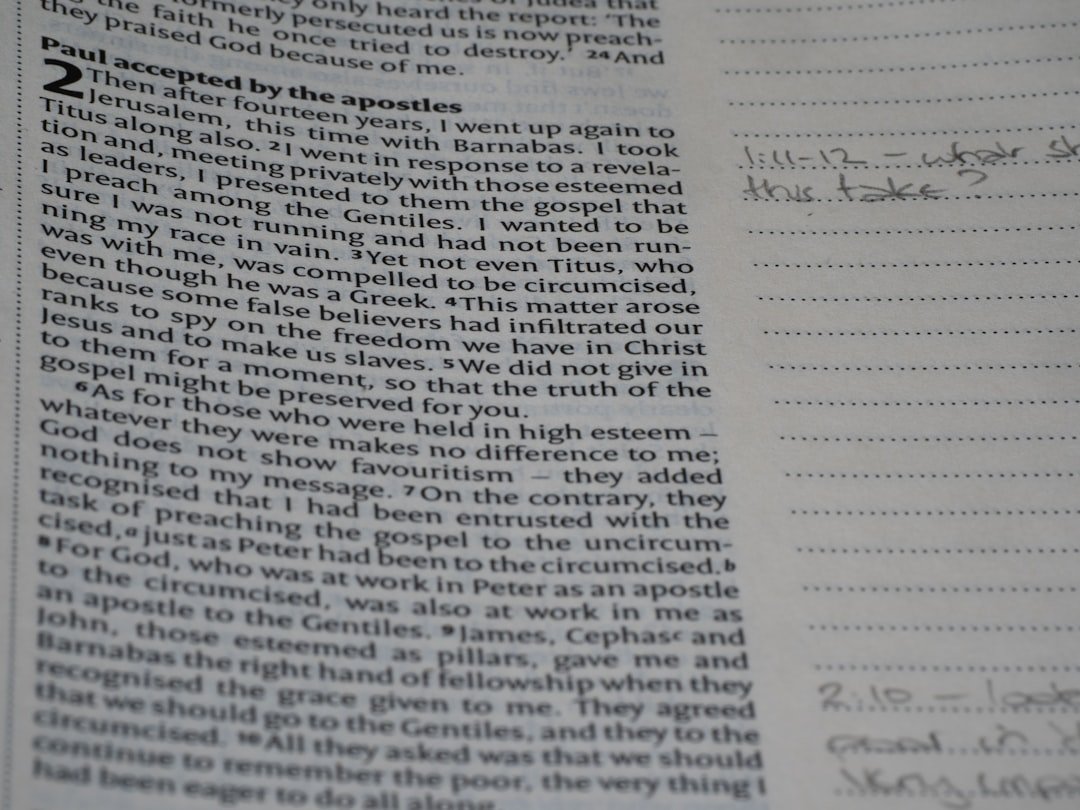 only heard the report: 'The
formerly persecuted us is now preach-
the faith he once tried to destroy.' 24 And
they praised God because of me.
Paul accepted by the apostles
2 Then after fourteen years, I went up again to
Jerusalem, this time with Barnabas. I took
Titus along also. 2 I went in response to a revela-
tion and, meeting privately with those esteemed
as leaders, I presented to them the gospel that
I preach among the Gentiles. I wanted to be
sure I was not running and had not been run-
ning my race in vain. 3 Yet not even Titus, who
was with me, was compelled to be circumcised,
even though he was a Greek. 4 This matter arose
because some false believers had infiltrated our
ranks to spy on the freedom we have in Christ
Jesus and to make us slaves. 5 We did not give in
to them for a moment, so that the truth of the
gospel might be preserved for you.
6 As for those who were held in high esteem –
whatever they were makes no difference to me;
God does not show favouritism – they added
nothing to my message. 7 On the contrary, they
recognised that I had been entrusted with the
task of preaching the gospel to the uncircum-
cised,a just as Peter had been to the circumcised.b
8 For God, who was at work in Peter as an apostle
to the circumcised, was also at work in me as
an apostle to the Gentiles. 9 James, Cephasc and
John, those esteemed as pillars, gave me and
Barnabas the right hand of fellowship when they
recognised the grace given to me. They agreed
that we should go to the Gentiles, and they to the
circumcised. 10 All they asked was that we should
continue to remember the poor, the very thing I
had been eager to do all along.
1:11-12 – what
this take?
2:10 –